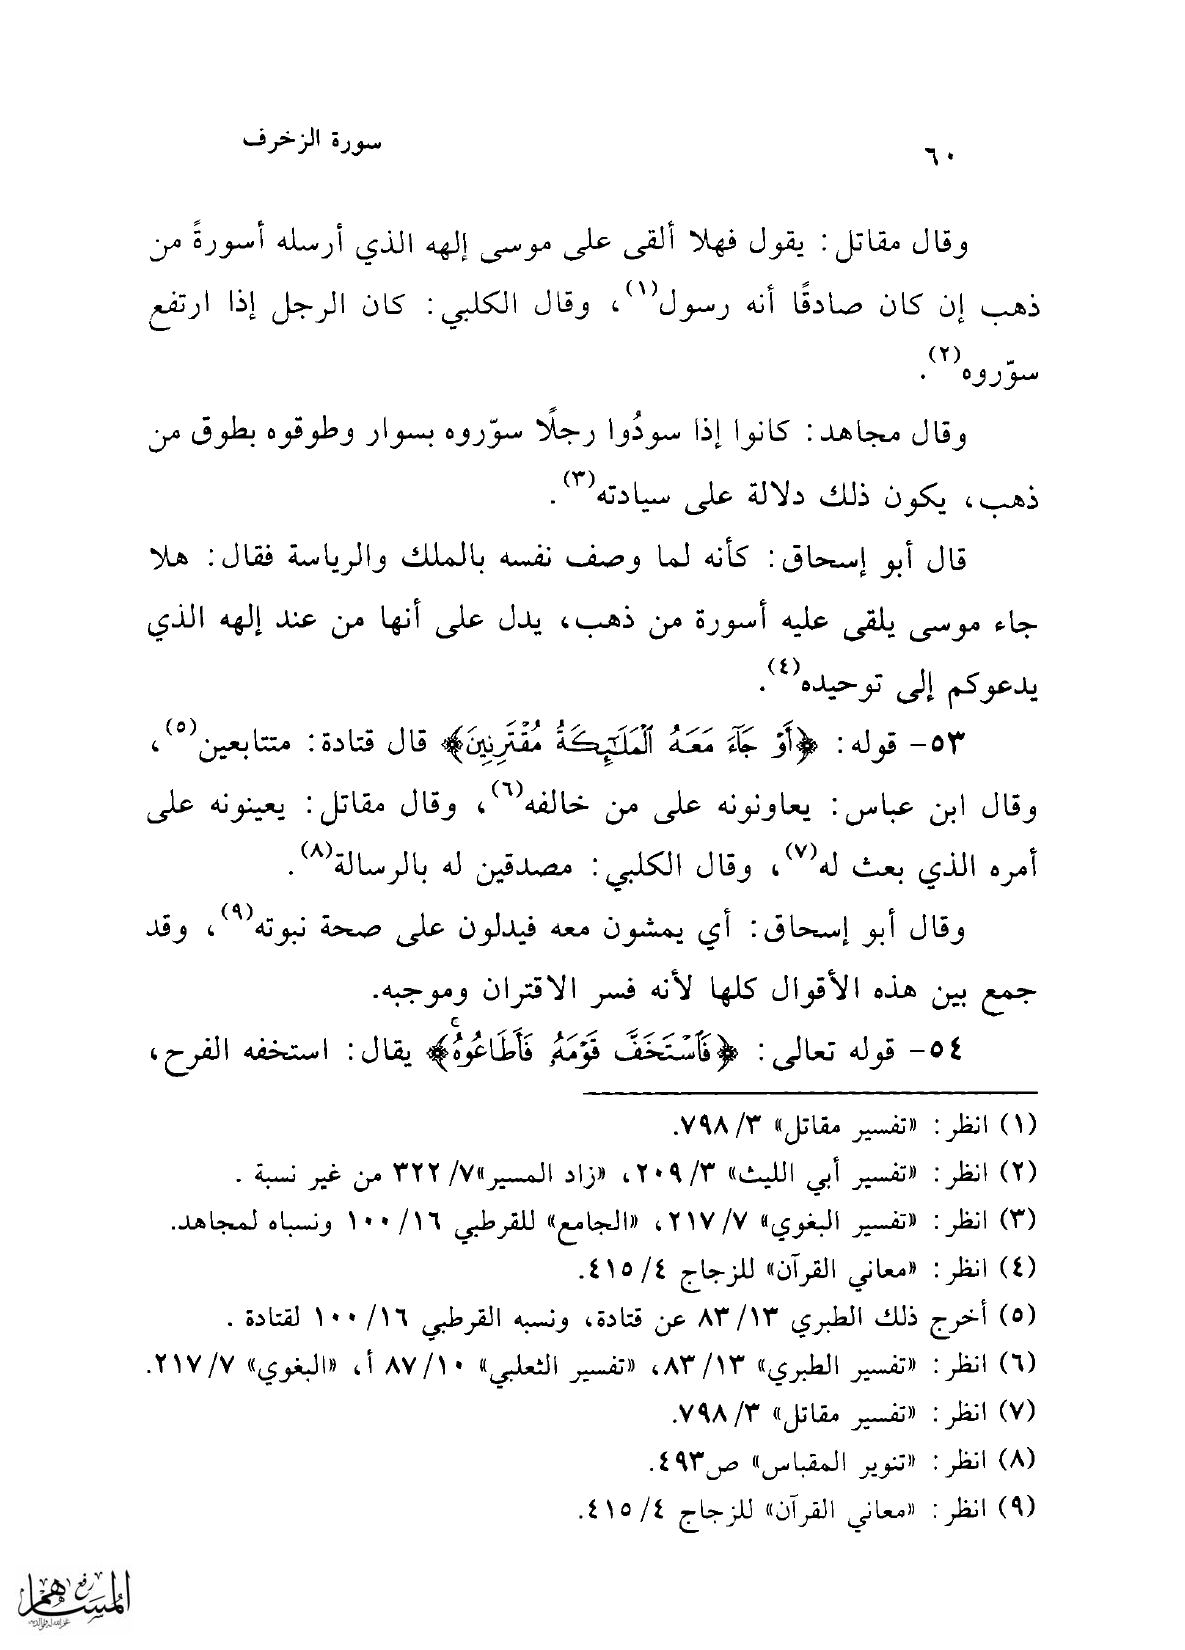 ٦٠
سورة الزخرف
وقال مقاتل: يقول فهلا ألقى على موسى إلهه الذي أرسله أسورةً من
ذهب إن كان صادقًا أنه رسول(١)، وقال الكلبي: كان الرجل إذا ارتفع
سوّروه(٢).
وقال مجاهد: كانوا إذا سودُوا رجلًا سوّروه بسوار وطوقوه بطوق من
ذهب، يكون ذلك دلالة على سيادته(٣).
قال أبو إسحاق: كأنه لما وصف نفسه بالملك والرياسة فقال: هلا
جاء موسى يلقى عليه أسورة من ذهب، يدل على أنها من عند إلهه الذي
يدعوكم إلى توحيده(٤).
٥٣- قوله: ﴿أَوْ جَآءَ مَعَهُ ٱلْمَلَٰٓئِكَةُ مُقْتَرِنِينَ﴾ قال قتادة: متتابعين(٥)،
وقال ابن عباس: يعاونونه على من خالفه(٦)، وقال مقاتل: يعينونه على
أمره الذي بعث له(٧)، وقال الكلبي: مصدقين له بالرسالة(٨).
وقال أبو إسحاق: أي يمشون معه فيدلون على صحة نبوته(٩)، وقد
جمع بين هذه الأقوال كلها لأنه فسر الاقتران وموجبه.
٥٤- قوله تعالى: ﴿فَٱسْتَخَفَّ قَوْمَهُۥ فَأَطَاعُوهُۚ﴾ يقال: استخفه الفرح،
(١) انظر: «تفسير مقاتل» ٣/ ٧٩٨.
(٢) انظر: «تفسير أبي الليث» ٣/ ٢٠٩، «زاد المسير»٧/ ٣٢٢ من غير نسبة .
(٣) انظر: «تفسير البغوي» ٧/ ٢١٧، «الجامع» للقرطبي ١٦/ ١٠٠ ونسباه لمجاهد.
(٤) انظر: «معاني القرآن» للزجاج ٤/ ٤١٥.
(٥) أخرج ذلك الطبري ١٣/ ٨٣ عن قتادة، ونسبه القرطبي ١٦/ ١٠٠ لقتادة .
(٦) انظر: «تفسير الطبري» ١٣/ ٨٣، «تفسير الثعلبي» ١٠/ ٨٧ أ، «البغوي» ٧/ ٢١٧.
(٧) انظر: «تفسير مقاتل» ٣/ ٧٩٨.
(٨) انظر: «تنوير المقباس» ص٤٩٣.
(٩) انظر: «معاني القرآن» للزجاج ٤/ ٤١٥.